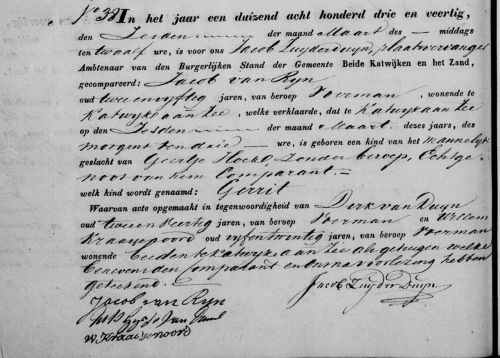 No 38 In het jaar een duizend acht honderd drie en veertig,
den Zesden der maand Maart des middags
ten twaalf ure, is voor ons Jacob Zuyderduyn, plaatsvervangend
Ambtenaar van den Burgerlijken Stand der Gemeente Beide Katwijken en het Zand,
gecompareerd: Jacob van Ryn
oud tweeenvyftig jaren, van beroep Voerman, wonende te
Katwyk aan Zee, welke verklaarde, dat te Katwyk aan Zee
op den Zesden der maand Maart dezes jaars, des
morgens ten drie ure, is geboren een kind van het mannelyk
geslacht van Geertje Hoek Zonder beroep, Echtge-
noot van hem Comparant.
welk kind wordt genaamd: Gerrit
Waarvan acte opgemaakt in tegenwoordigheid van Dirk van Duyn
oud tweeenveertig jaren, van beroep Voerman en Willem
Kraayenoord oud vyfentwintig jaren, van beroep Voerman
wonende beiden te Katwyk aan Zee als getuigen welke
benevens den Comparant en ons na voorlezing hebben
geteekend.
Jacob van Ryn
Jacob Zuyderduyn
W. Kraaijenoord